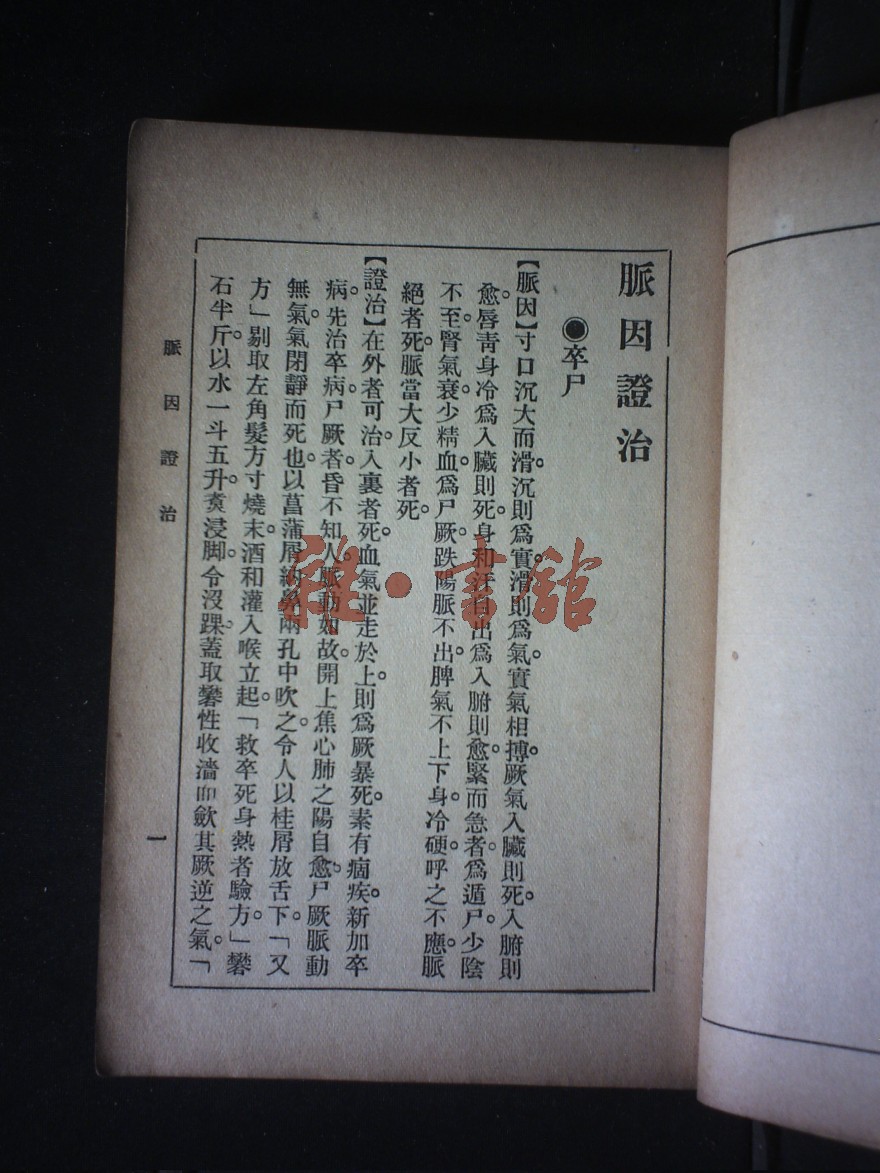 脈因證治
◉卒尸
【脈因】寸口沉大而滑。沉則爲實。滑則爲氣。實氣相搏。厥氣入臟則死。入腑則
愈。唇青身冷爲入臟則死。身和汗自出爲入腑則愈。緊而急者。爲遁尸。少陰
不至。腎氣衰。少精血。爲尸厥。趺陽脈不出。脾氣不上下。身冷硬。呼之不應。脈
絕者死。脈當大反小者死。
【證治】在外者可治。入裏者死。血氣並走於上。則爲厥暴死。素有痼疾。新加卒
病。先治卒病。尸厥者。昏不知人。脈動如故。開上焦心肺之陽自愈。尸厥脈動
無氣。氣閉靜而死也。以菖蒲屑納鼻兩孔中吹之。令人以桂屑放舌下。「又
方」剔取左角髮方寸燒末。酒和灌入喉立起。「救卒死身熱者驗方。」礬
石半斤。以水一斗五升。煑浸脚。令沒踝。蓋取礬性收濇而歛其厥逆之氣。「
脈因證治
一
雅·書館